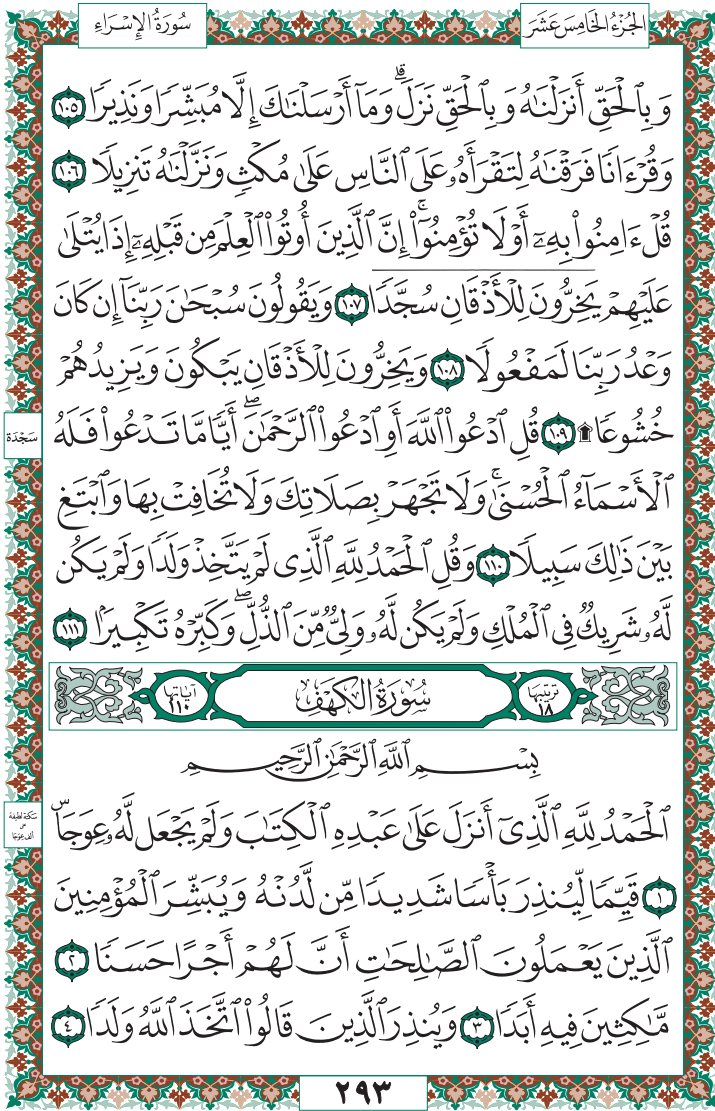 الجُزْءُ الخَامِسَ عَشَرَ
سُورَةُ الإِسْرَاءِ
وَبِٱلْحَقِّ أَنزَلْنَٰهُ وَبِٱلْحَقِّ نَزَلَ ۗ وَمَآ أَرْسَلْنَٰكَ إِلَّا مُبَشِّرًا وَنَذِيرًا ١٠٥
وَقُرْءَانًا فَرَقْنَٰهُ لِتَقْرَأَهُۥ عَلَى ٱلنَّاسِ عَلَىٰ مُكْثٍ وَنَزَّلْنَٰهُ تَنزِيلًا ١٠٦
قُلْ ءَامِنُوا۟ بِهِۦٓ أَوْ لَا تُؤْمِنُوٓا۟ ۚ إِنَّ ٱلَّذِينَ أُوتُوا۟ ٱلْعِلْمَ مِن قَبْلِهِۦٓ إِذَا يُتْلَىٰ
عَلَيْهِمْ يَخِرُّونَ لِلْأَذْقَانِ سُجَّدًا ١٠٧ وَيَقُولُونَ سُبْحَٰنَ رَبِّنَآ إِن كَانَ
وَعْدُ رَبِّنَا لَمَفْعُولًا ١٠٨ وَيَخِرُّونَ لِلْأَذْقَانِ يَبْكُونَ وَيَزِيدُهُمْ
سَجْدَة
خُشُوعًا ۩ ١٠٩ قُلِ ٱدْعُوا۟ ٱللَّهَ أَوِ ٱدْعُوا۟ ٱلرَّحْمَٰنَ ۖ أَيًّا مَّا تَدْعُوا۟ فَلَهُ
ٱلْأَسْمَآءُ ٱلْحُسْنَىٰ ۚ وَلَا تَجْهَرْ بِصَلَاتِكَ وَلَا تُخَافِتْ بِهَا وَٱبْتَغِ
بَيْنَ ذَٰلِكَ سَبِيلًا ١١٠ وَقُلِ ٱلْحَمْدُ لِلَّهِ ٱلَّذِى لَمْ يَتَّخِذْ وَلَدًا وَلَمْ يَكُن
لَّهُۥ شَرِيكٌ فِى ٱلْمُلْكِ وَلَمْ يَكُن لَّهُۥ وَلِىٌّ مِّنَ ٱلذُّلِّ ۖ وَكَبِّرْهُ تَكْبِيرًۢا ١١١
تَرتيبُهَا ١٨ سُورَةُ الكَهْفِ آيَاتُهَا ١١٠
بِسْمِ ٱللَّهِ ٱلرَّحْمَٰنِ ٱلرَّحِيمِ
سكتة لطيفة على ألف عوجا
ٱلْحَمْدُ لِلَّهِ ٱلَّذِىٓ أَنزَلَ عَلَىٰ عَبْدِهِ ٱلْكِتَٰبَ وَلَمْ يَجْعَل لَّهُۥ عِوَجَاۜ
١ قَيِّمًا لِّيُنذِرَ بَأْسًا شَدِيدًا مِّن لَّدُنْهُ وَيُبَشِّرَ ٱلْمُؤْمِنِينَ
ٱلَّذِينَ يَعْمَلُونَ ٱلصَّٰلِحَٰتِ أَنَّ لَهُمْ أَجْرًا حَسَنًا ٢
مَّٰكِثِينَ فِيهِ أَبَدًا ٣ وَيُنذِرَ ٱلَّذِينَ قَالُوا۟ ٱتَّخَذَ ٱللَّهُ وَلَدًا ٤
٢٩٣